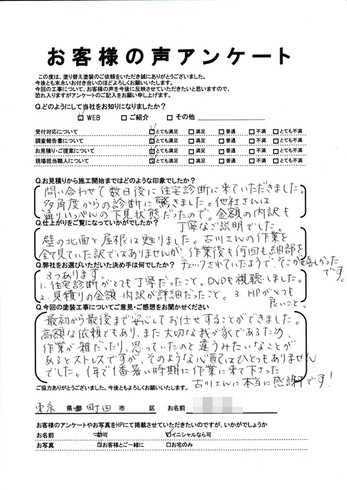 お客様の声アンケート
この度は、塗り替え塗装のご依頼をいただき誠にありがとうございました。
今後とも末永いお付き合いのほどよろしくお願いいたします。
今回の工事について、お客様の声を今後に反映させていただきたいと思いますので、
恐れ入りますがアンケートのご記入をお願い申し上げます。
Q.どのようにして当社をお知りになりましたか？
☑WEB □ご紹介 □その他
受付対応について ☑とても満足 □満足 □普通 □不満 □とても不満
調査報告書について ☑とても満足 □満足 □普通 □不満 □とても不満
お見積り・ご提案について ☑とても満足 □満足 □普通 □不満 □とても不満
現場担当職人について ☑とても満足 □満足 □普通 □不満 □とても不満
Q.お見積から施工開始まではどのような印象でしたか？
問い合わせて数日後に住宅診断に来ていただきました。
多角度からの診断に驚きました。他社さんは
通りいっぺんの下見状態だったので。金額の内訳も
丁寧なご説明でした。
Q.仕上がりをご覧になっていかがでしたか？
壁の北面と屋根は甦りました。古川さんの作業を
全て見ていた訳ではありませんが、作業後も何回も細部を
チェックされていたようで、
です。
Q.弊社をお選びいただいた決め手は何でしたか？
3つあります。
1. 住宅診断がとても丁寧だったこと。DVDも視聴しました。
2. 見積りの金額・内訳が詳細だったこと。 3. HPがとても
良いこと。
Q.今回の塗装工事についてご意見・ご感想をお聞かせください
最初から最後まで安心してお任せすることができました。
高額な依頼でもあり、また大切な我が家であるため、
作業が雑だったり、思っていたのと違うみたいなことが
あるとストレスですが、そのような心配はひとつもありません
でした。1年で1番暑い時期に作業に来て下さった
古川さんに本当に感謝です!
ご協力ありがとうございました。今後ともよろしくお願いいたします。
東京 県・都 町田 市 区 お名前
お客様のアンケートやお写真をHPにて掲載させていただきたいのですが、いかがでしょうか
お名前 □可 ☑イニシャルなら可
お写真 ☑お客様とご一緒に □お宅のみ